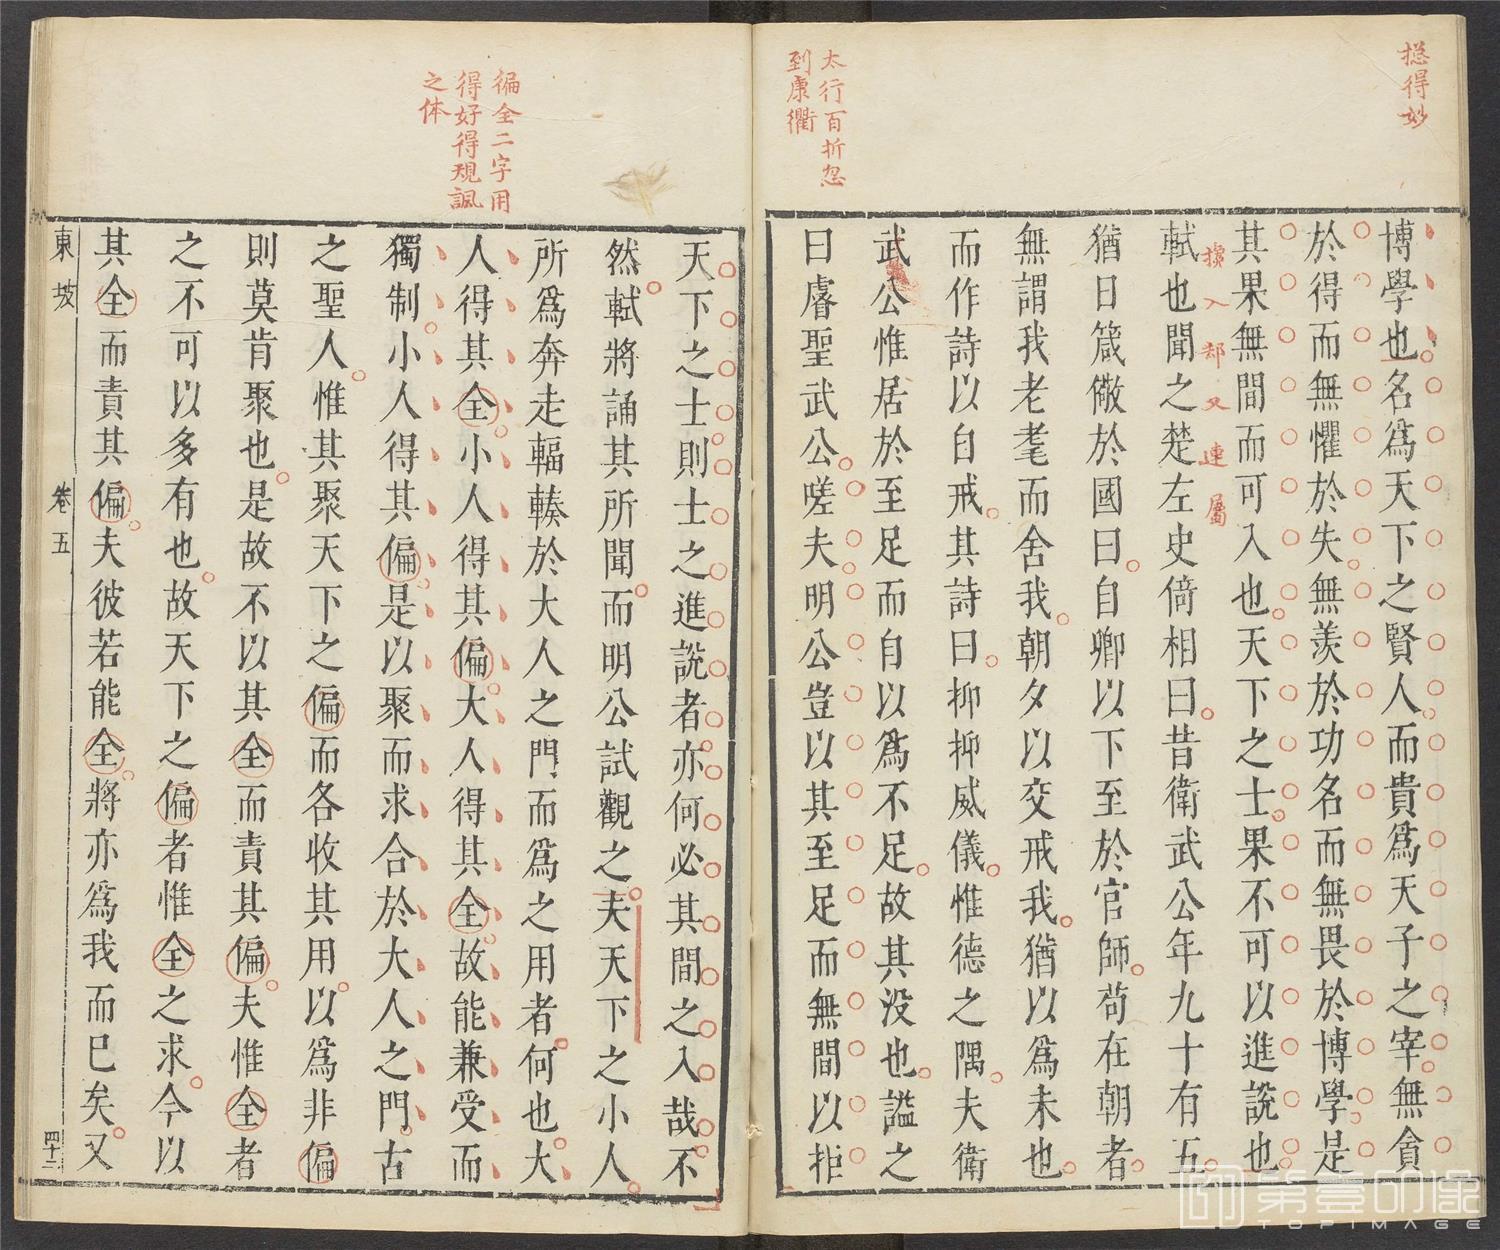 摠得妙
太行百折忽
到康衢
博學也名爲天下之賢人而貴爲天子之宰無貪
於得而無懼於失無羨於功名而無畏於博學是
其果無間而可入也天下之士果不可以進說也
接入却又連屬
軾也聞之楚左史倚相曰昔衛武公年九十有五
猶日箴儆於國曰自卿以下至於官師苟在朝者
無謂我老耄而舍我朝夕以交戒我猶以爲未也
而作詩以自戒其詩曰抑抑威儀惟德之隅夫衛
武公惟居於至足而自以爲不足故其没也謚之
曰睿聖武公嗟夫明公豈以其至足而無間以拒
偏全二字用
得好得規諷
之体
天下之士則士之進說者亦何必其間之入哉不
然軾將誦其所聞而明公試觀之夫天下之小人
所爲奔走輻輳於大人之門而爲之用者何也大
人得其全小人得其偏大人得其全故能兼受而
獨制小人得其偏是以聚而求合於大人之門古
之聖人惟其聚天下之偏而各收其用以爲非偏
則莫肯聚也是故不以其全而責其偏夫惟全者
之不可以多有也故天下之偏者惟全之求今以
其全而責其偏夫彼若能全將亦爲我而已矣又
東坡
卷五
四十二
第壹印像
TOPIMAGE